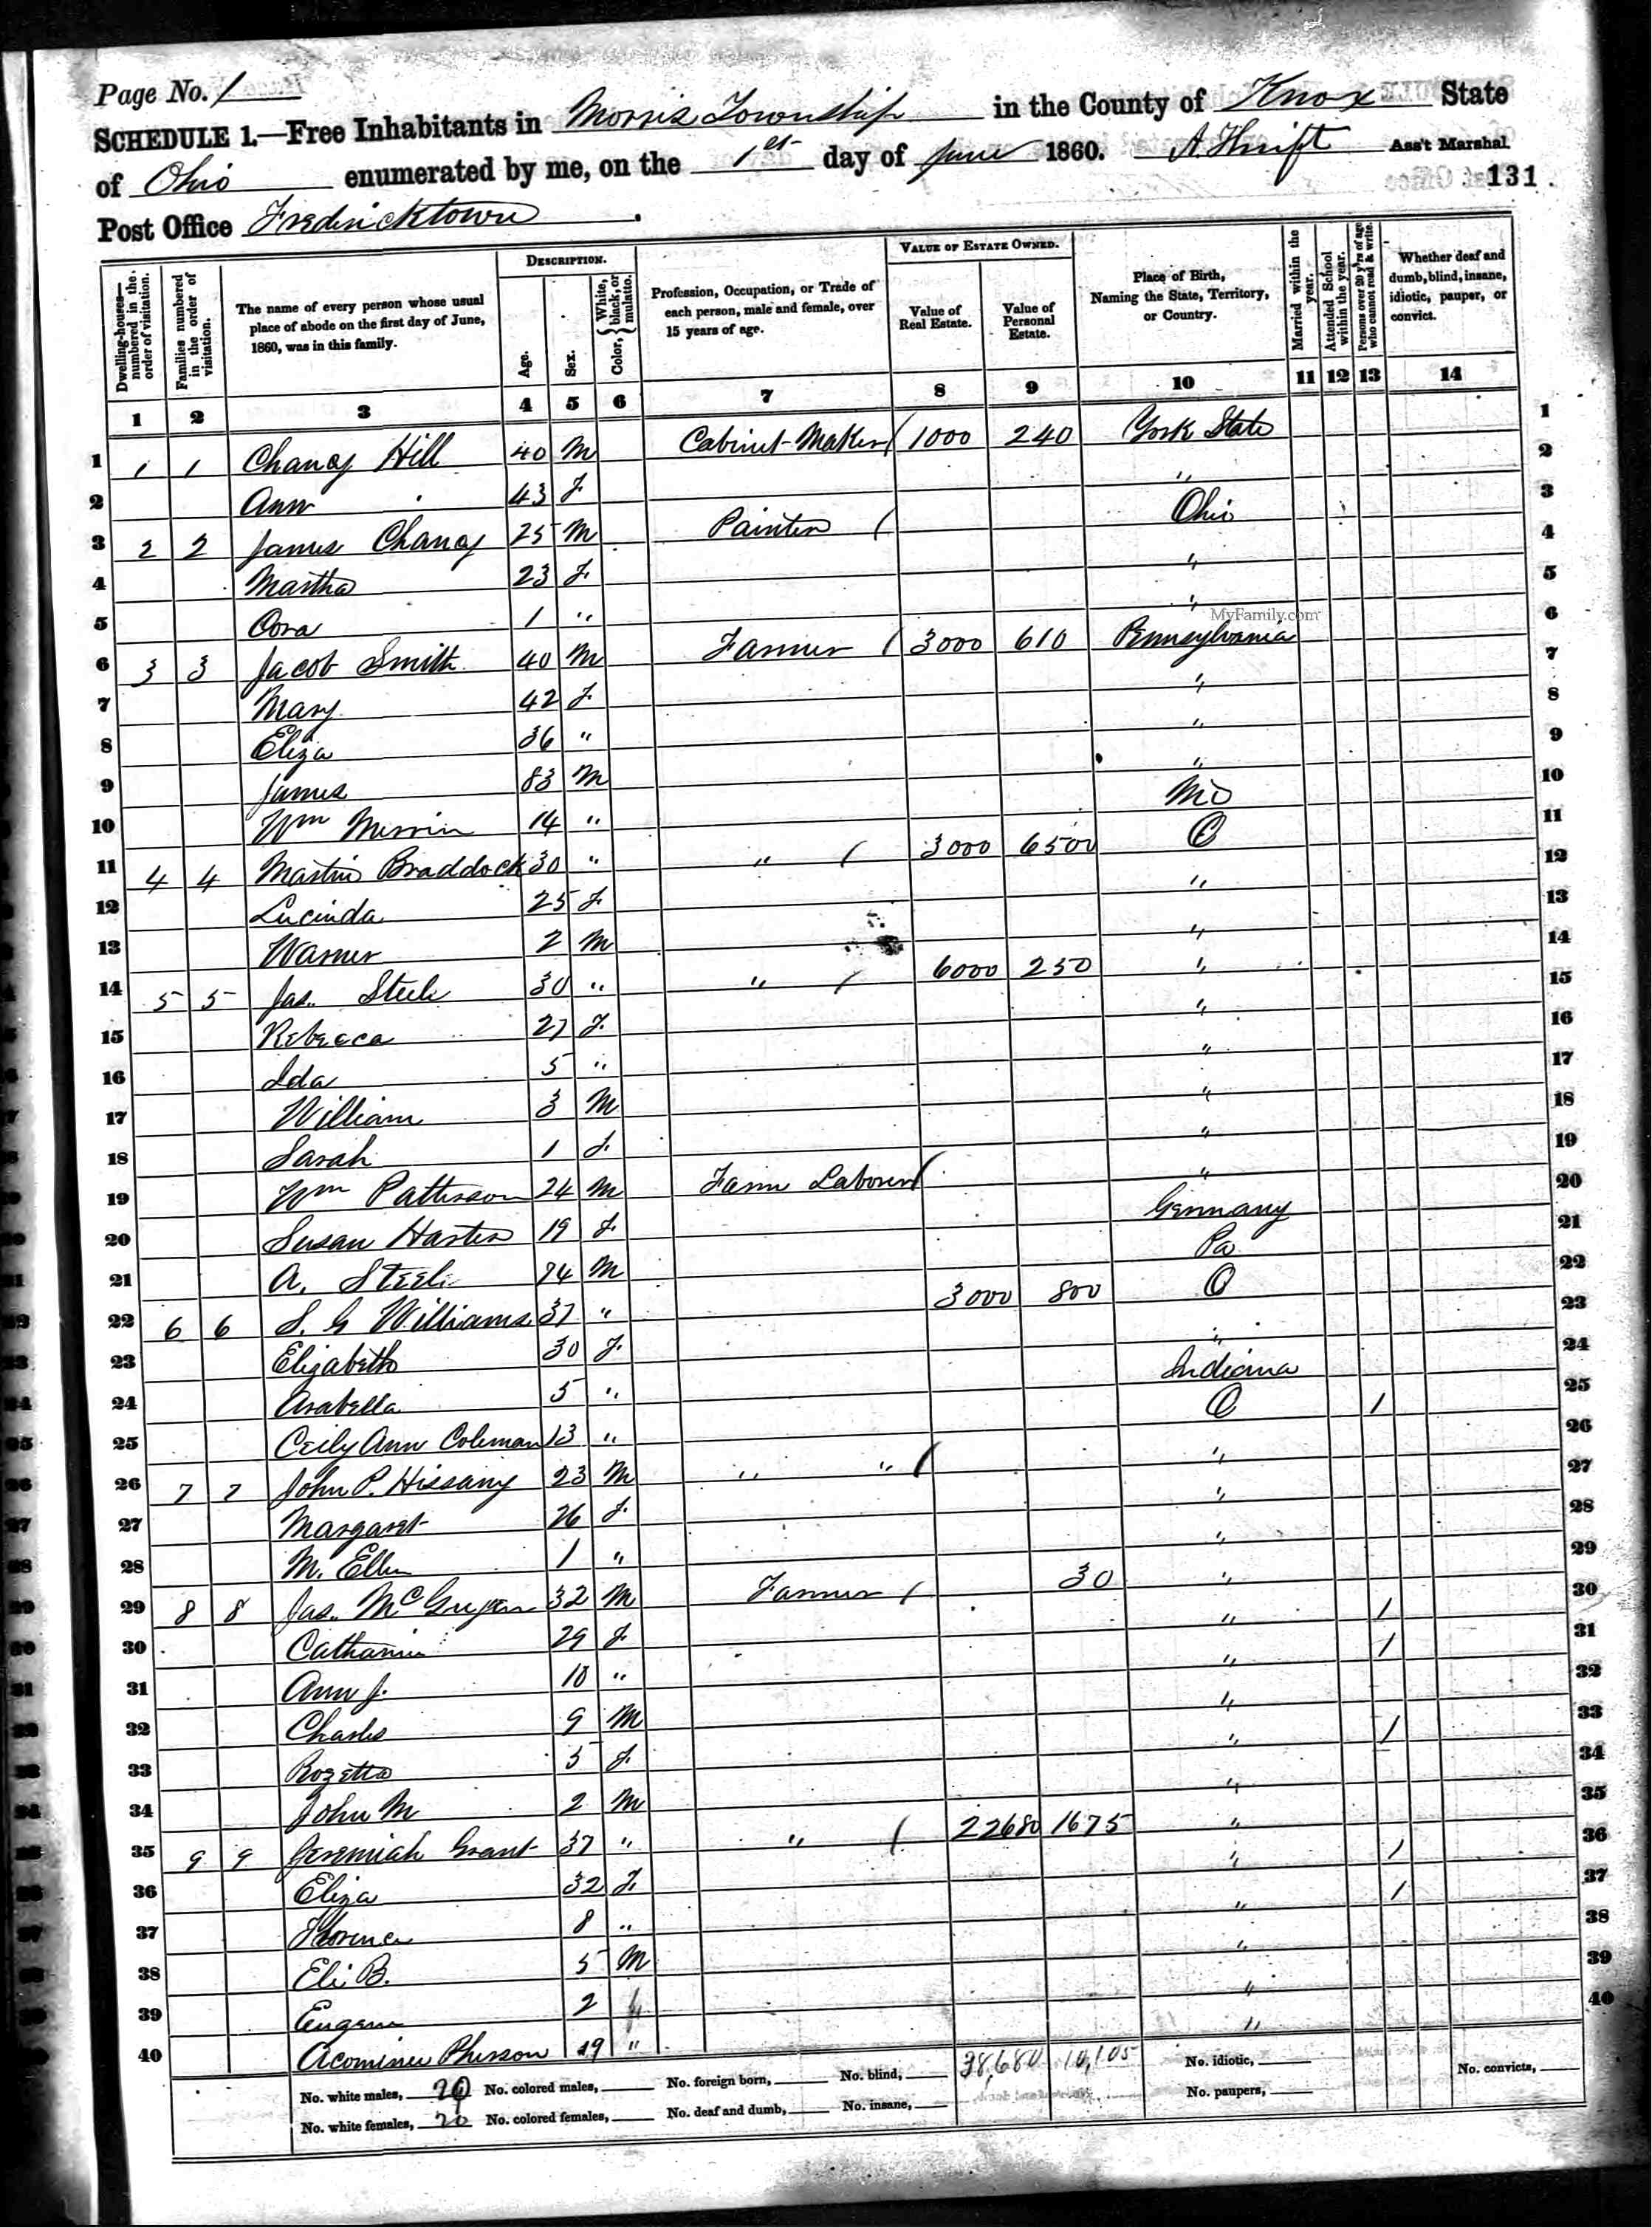 Page No. 1
SCHEDULE 1.—Free Inhabitants in Morris Township in the County of Knox State
of Ohio enumerated by me, on the 1st day of June 1860. A. Thrift Ass't Marshal.
131
Post Office Fredericktown
Dwelling-houses—numbered in the order of visitation. Families numbered in the order of visitation. The name of every person whose usual place of abode on the first day of June, 1860, was in this family. DESCRIPTION. Age. Sex. Color, {White, black, or mulatto. Profession, Occupation, or Trade of each person, male and female, over 15 years of age. VALUE OF ESTATE OWNED. Value of Real Estate. Value of Personal Estate. Place of Birth, Naming the State, Territory, or Country. Married within the year. Attended School within the year. Persons over 20 y'rs of age who cannot read & write. Whether deaf and dumb, blind, insane, idiotic, pauper, or convict.
1 2 3 4 5 6 7 8 9 10 11 12 13 14
1 1 1 Chancy Hill 40 M Cabinet Maker 1000 240 York State 1
2 Ann 43 F " 2
3 2 2 James Chancy 25 M Painter Ohio 3
4 Martha 23 F " 4
5 Cora 1 " " 5
6 3 3 Jacob Smith 40 M Farmer 3000 610 Pennsylvania 6
MyFamily.com
7 Mary 42 F " 7
8 Eliza 36 " " 8
9 James 83 M " 9
10 Wm Merrin 14 " Mo 10
11 4 4 Martin Braddock 30 " " 3000 6500 O 11
12 Lucinda 25 F " 12
13 Warner 2 M " 13
14 5 5 Jas. Steele 30 " " 6000 250 " 14
15 Rebecca 27 F " 15
16 Ida 5 " " 16
17 William 3 M " 17
18 Sarah 1 F " 18
19 Wm Patterson 24 M Farm Laborer " 19
20 Susan Harter 19 F Germany 20
21 A. Steele 74 M Pa 21
22 6 6 S. G Williams 37 " 3000 800 O 22
23 Elizabeth 30 F " 23
24 Arabella 5 " Indiana 24
25 Cecily Ann Coleman 13 " O / 25
26 7 7 John P. 23 M " " " 26
27 Margaret 26 F " 27
28 M. Ellen 1 " " 28
29 8 8 Jas. 32 M Farmer 30 " 29
30 Catharine 29 F " / 30
31 Ann J. 10 " " / 31
32 Charles 9 M " 32
33 Rozetta 5 F " / 33
34 John M 2 M " 34
35 9 9 Jeremiah Grant 37 " " 22680 1675 " 35
36 Eliza 32 F " / 36
37 Florence 8 " " / 37
38 Eli B. 5 M " 38
39 Eugene 2 " 39
40 19 " " 40
No. white males, 20 No. colored males, No. foreign born, No. blind, 38,680 10,105 No. idiotic, No. convicts,
No. white females, 20 No. colored females, No. deaf and dumb, No. insane, No. paupers,